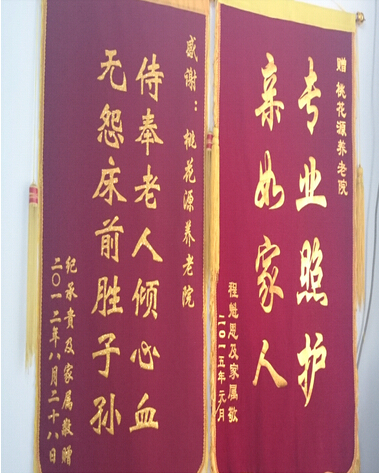 感谢：桃花源养老院
侍奉老人倾心血
无怨床前胜子孙
纪承贵及家属敬赠
二〇一二年八月二十八日
赠 桃花源养老院
专业照护
亲如家人
程魁恩及家属敬
二〇一五年元月